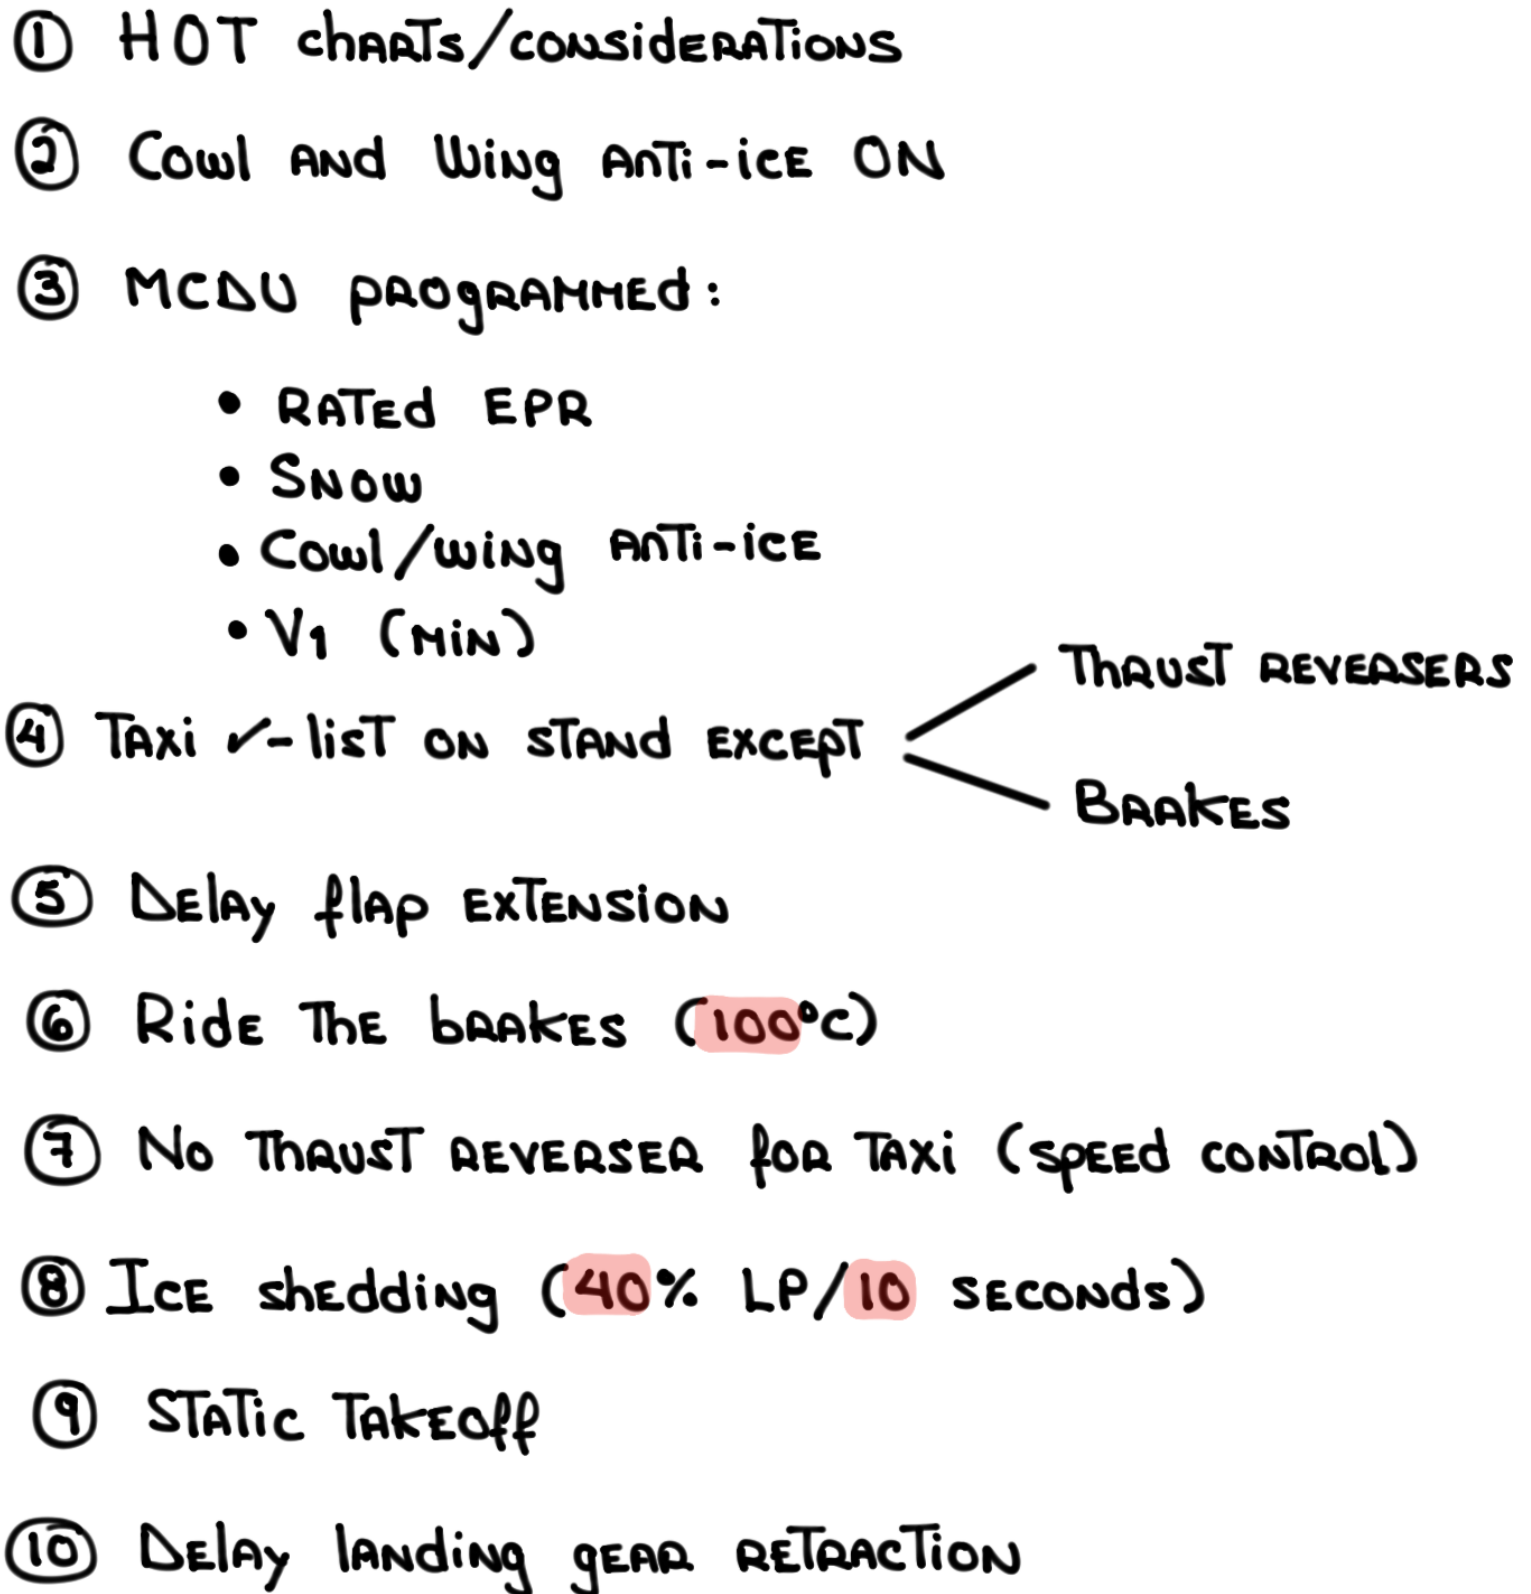 ① HOT charts/considerations
② Cowl and Wing Anti-ice ON
③ MCDU programmed:
• Rated EPR
• Snow
• Cowl/wing Anti-ice
• V1 (min)
④ Taxi ✓-list on stand except
Thrust reversers
Brakes
⑤ Delay flap extension
⑥ Ride the brakes (100°C)
⑦ No Thrust reverser for Taxi (speed control)
⑧ Ice shedding (40% LP/10 seconds)
⑨ Static Takeoff
⑩ Delay landing gear retraction